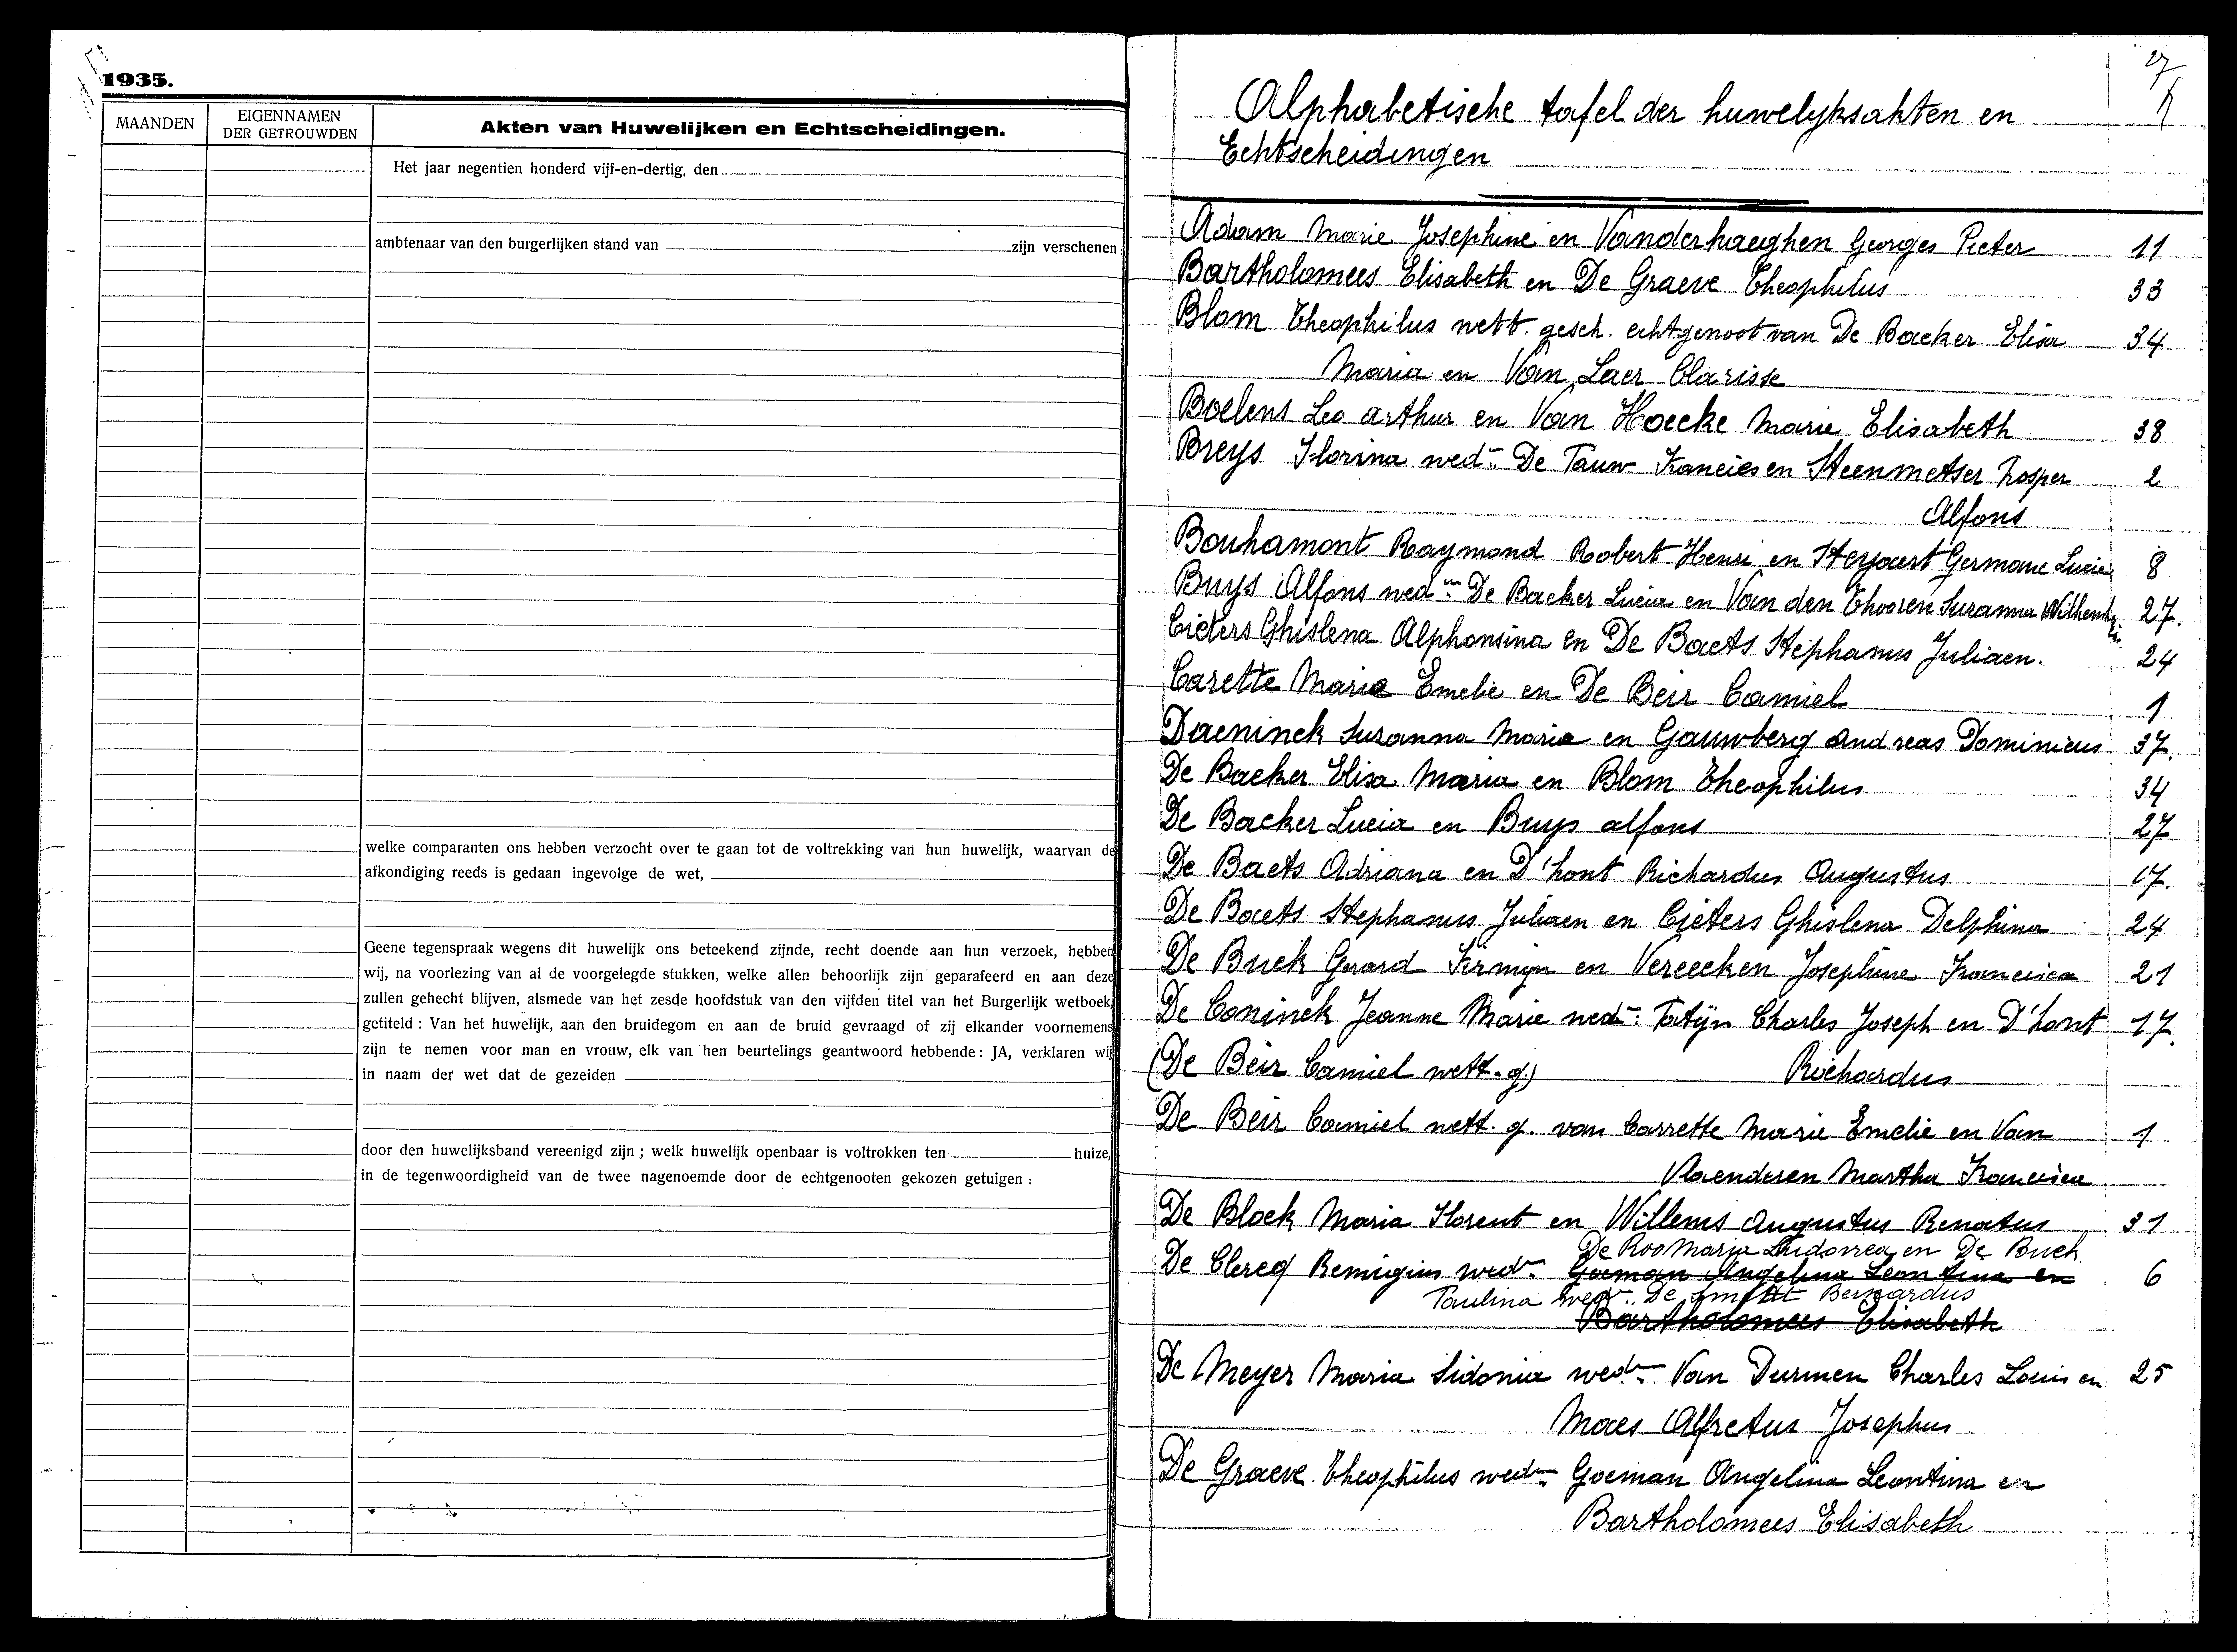 1935.
MAANDEN
EIGENNAMEN
DER GETROUWDEN
Akten van Huwelijken en Echtscheidingen.
Het jaar negentien honderd vijf-en-dertig, den
ambtenaar van den burgerlijken stand van zijn verschenen
welke comparanten ons hebben verzocht over te gaan tot de voltrekking van hun huwelijk, waarvan de
afkondiging reeds is gedaan ingevolge de wet,
Geene tegenspraak wegens dit huwelijk ons beteekend zijnde, recht doende aan hun verzoek, hebben
wij, na voorlezing van al de voorgelegde stukken, welke allen behoorlijk zijn geparafeerd en aan deze
zullen gehecht blijven, alsmede van het zesde hoofdstuk van den vijfden titel van het Burgerlijk wetboek,
getiteld : Van het huwelijk, aan den bruidegom en aan de bruid gevraagd of zij elkander voornemens
zijn te nemen voor man en vrouw, elk van hen beurtelings geantwoord hebbende : JA, verklaren wij
in naam der wet dat de gezeiden
door den huwelijksband vereenigd zijn ; welk huwelijk openbaar is voltrokken ten huize,
in de tegenwoordigheid van de twee nagenoemde door de echtgenooten gekozen getuigen :
Alphabetische tafel der huwelyksakten en
Echtscheidingen
Adam Marie Josephine en Vanderhaeghen Georges Pieter 11
Bartholomees Elisabeth en De Graeve Theophilus 33
Blom Theophilus wett. gesch. echtgenoot van De Backer Elisa 34
Maria en Van Laer Clarisse
Boelens Leo Arthur en Van Hoecke Marie Elisabeth 38
Breys Florina wede. De Pauw Francies en Steenmetser Prosper 2
Alfons
Bouhamont Raymond Robert Henri en Steyaert Germane Lucie 8
Buys Alfons wedn. De Backer Lucia en Van den Thooren Suzanna 27.
Cieters Ghislena Alphonsina en De Baets Stephanus Juliaen. 24
Carette Maria Emelie en De Beir Camiel 1
Daeninck Suzanna Maria en Gauwberg Andreas Dominicus 37.
De Backer Elisa Maria en Blom Theophilus 34
De Backer Lucia en Buys Alfons 27
De Baets Adriana en D'hont Richardus Augustus 17.
De Baets Stephanus Juliaen en Cieters Ghislena Delphina 24
De Buck Gerard Firmijn en Vereecken Josephine Francisca 21
De Coninck Jeanne Marie wede. Tatijn Charles Joseph en D'hont 17.
(De Beir Camiel wett. g.) Richardus
De Beir Camiel wett. g. van Carrette Marie Emelie en Van 1
Vlaenderen Martha Francisca
De Block Maria Florent en Willems Augustus Renatus 31
De Roo Maria Ludovica en De Buck
De Clercq Remigius wedr. Goeman Angelina Leontina en 6
Paulina wedr. De Smedt Bernardus
Bartholomees Elisabeth
De Meyer Maria Sidonia wede. Van Durmen Charles Louis en 25
Maes Alfretus Josephus
De Graeve Theophilus wedr. Goeman Angelina Leontina en
Bartholomees Elisabeth